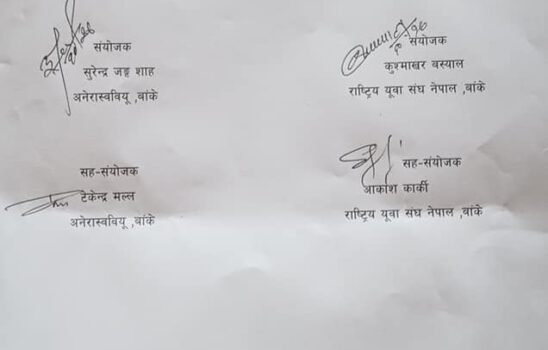 संयोजक
सुरेन्द्र जङ्ग शाह
अनेरास्ववियू ,बांके
संयोजक
कुश्माखर बस्याल
राष्ट्रिय यूवा संघ नेपाल ,बांके
सह-संयोजक
टेकेन्द्र मल्ल
अनेरास्ववियू ,बांके
सह-संयोजक
आकाश कार्की
राष्ट्रिय यूवा संघ नेपाल ,बांके